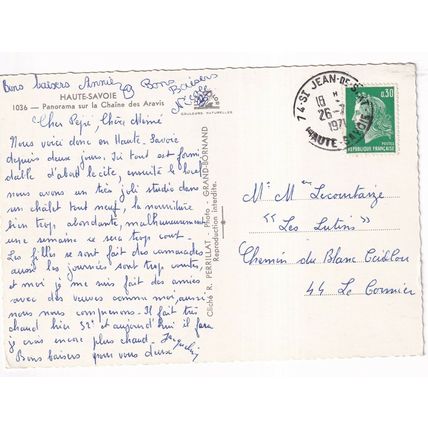 Bons baisers Annie
Bons
Baisers
HAUTE-SAVOIE
1036 — Panorama sur la Chaîne des Aravis
COULEURS NATURELLES
Cher Pépé, Chère Mémé
Nous voici donc en Haute-Savoie
depuis deux jours. Ici tout est formi-
dable d'abord le site, ensuite le local
nous avons un très joli studio dans
un châlet tout neuf, la nourriture
bien trop abondante, malheureusement
une semaine ce sera trop court.
Les filles se sont fait des camarades
aussi les journées sont trop courtes,
et moi je me suis fait des amies
avec des veuves comme moi, aussi
nous nous comprenons. Il fait très
chaud hier 32° et aujourd'hui il fera
je crois encore plus chaud.
Bons baisers pour vous deux
Cliché R. PERRILLAT - Photo - GRAND-BORNAND
Reproduction interdite
74-ST JEAN-DE-
18 H
26-
1971
HAUTE-SAVOIE
0,30
POSTES
REPUBLIQUE FRANÇAISE
Mr Mme
"Les Lutins"
Chemin du Blanc
44 Le Cormier